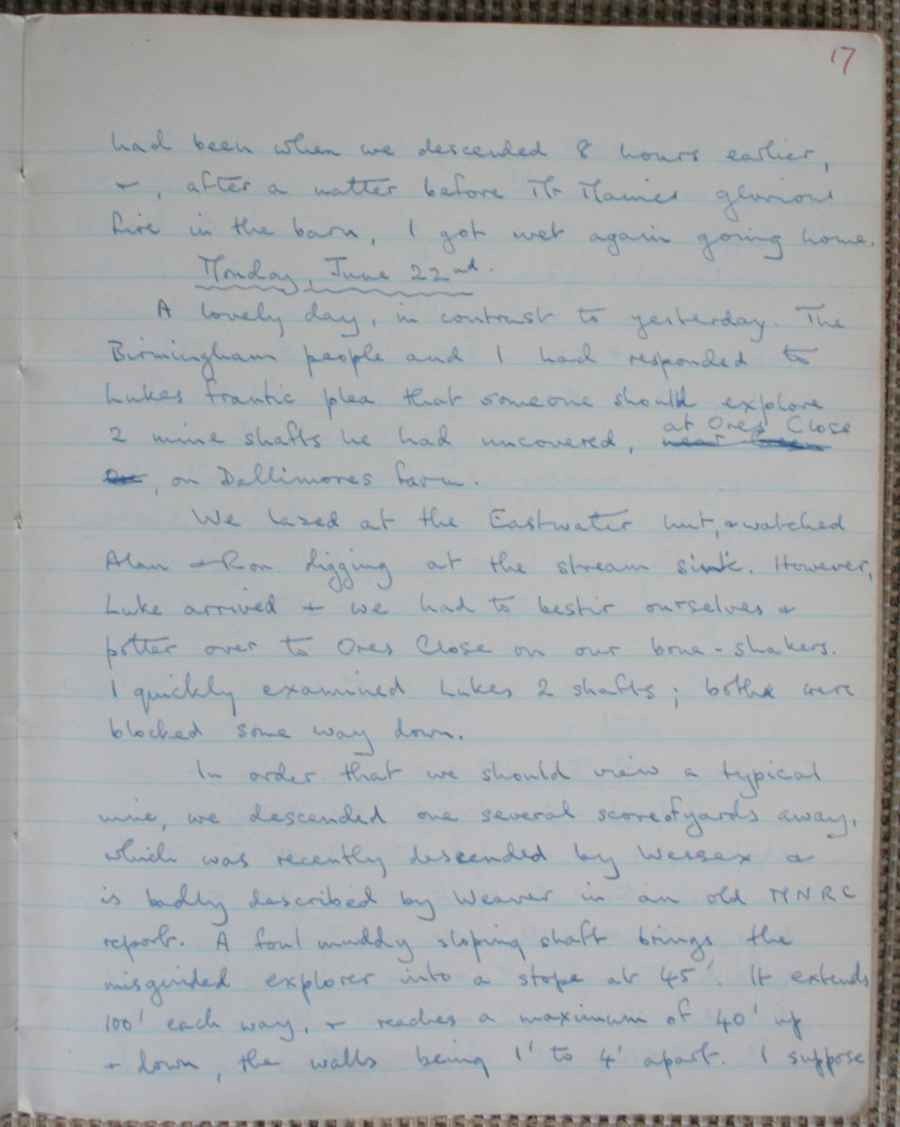 17
had been when we descended 8 hours earlier,
+, after a natter before Mr Maines glorious
fire in the barn, I got wet again going home.
Monday, June 22nd.
A lovely day, in contrast to yesterday. The
Birmingham people and I had responded to
Lukes frantic plea that someone should explore
2 mine shafts he had uncovered, at Ores Close
, on Dallimores farm.
We lazed at the Eastwater hut, + watched
Alan + Ron digging at the stream sink. However,
Luke arrived + we had to bestir ourselves +
potter over to Ores Close on our bone-shakers.
I quickly examined Lukes 2 shafts; both were
blocked some way down.
In order that we should view a typical
mine, we descended one several score of yards away,
which was recently descended by Wessex +
is badly described by Weaver in an old MNRC
report. A foul muddy sloping shaft brings the
misguided explorer into a stope at 45'. It extends
100' each way, + reaches a maximum of 40' up
+ down, the walls being 1' to 4' apart. I suppose